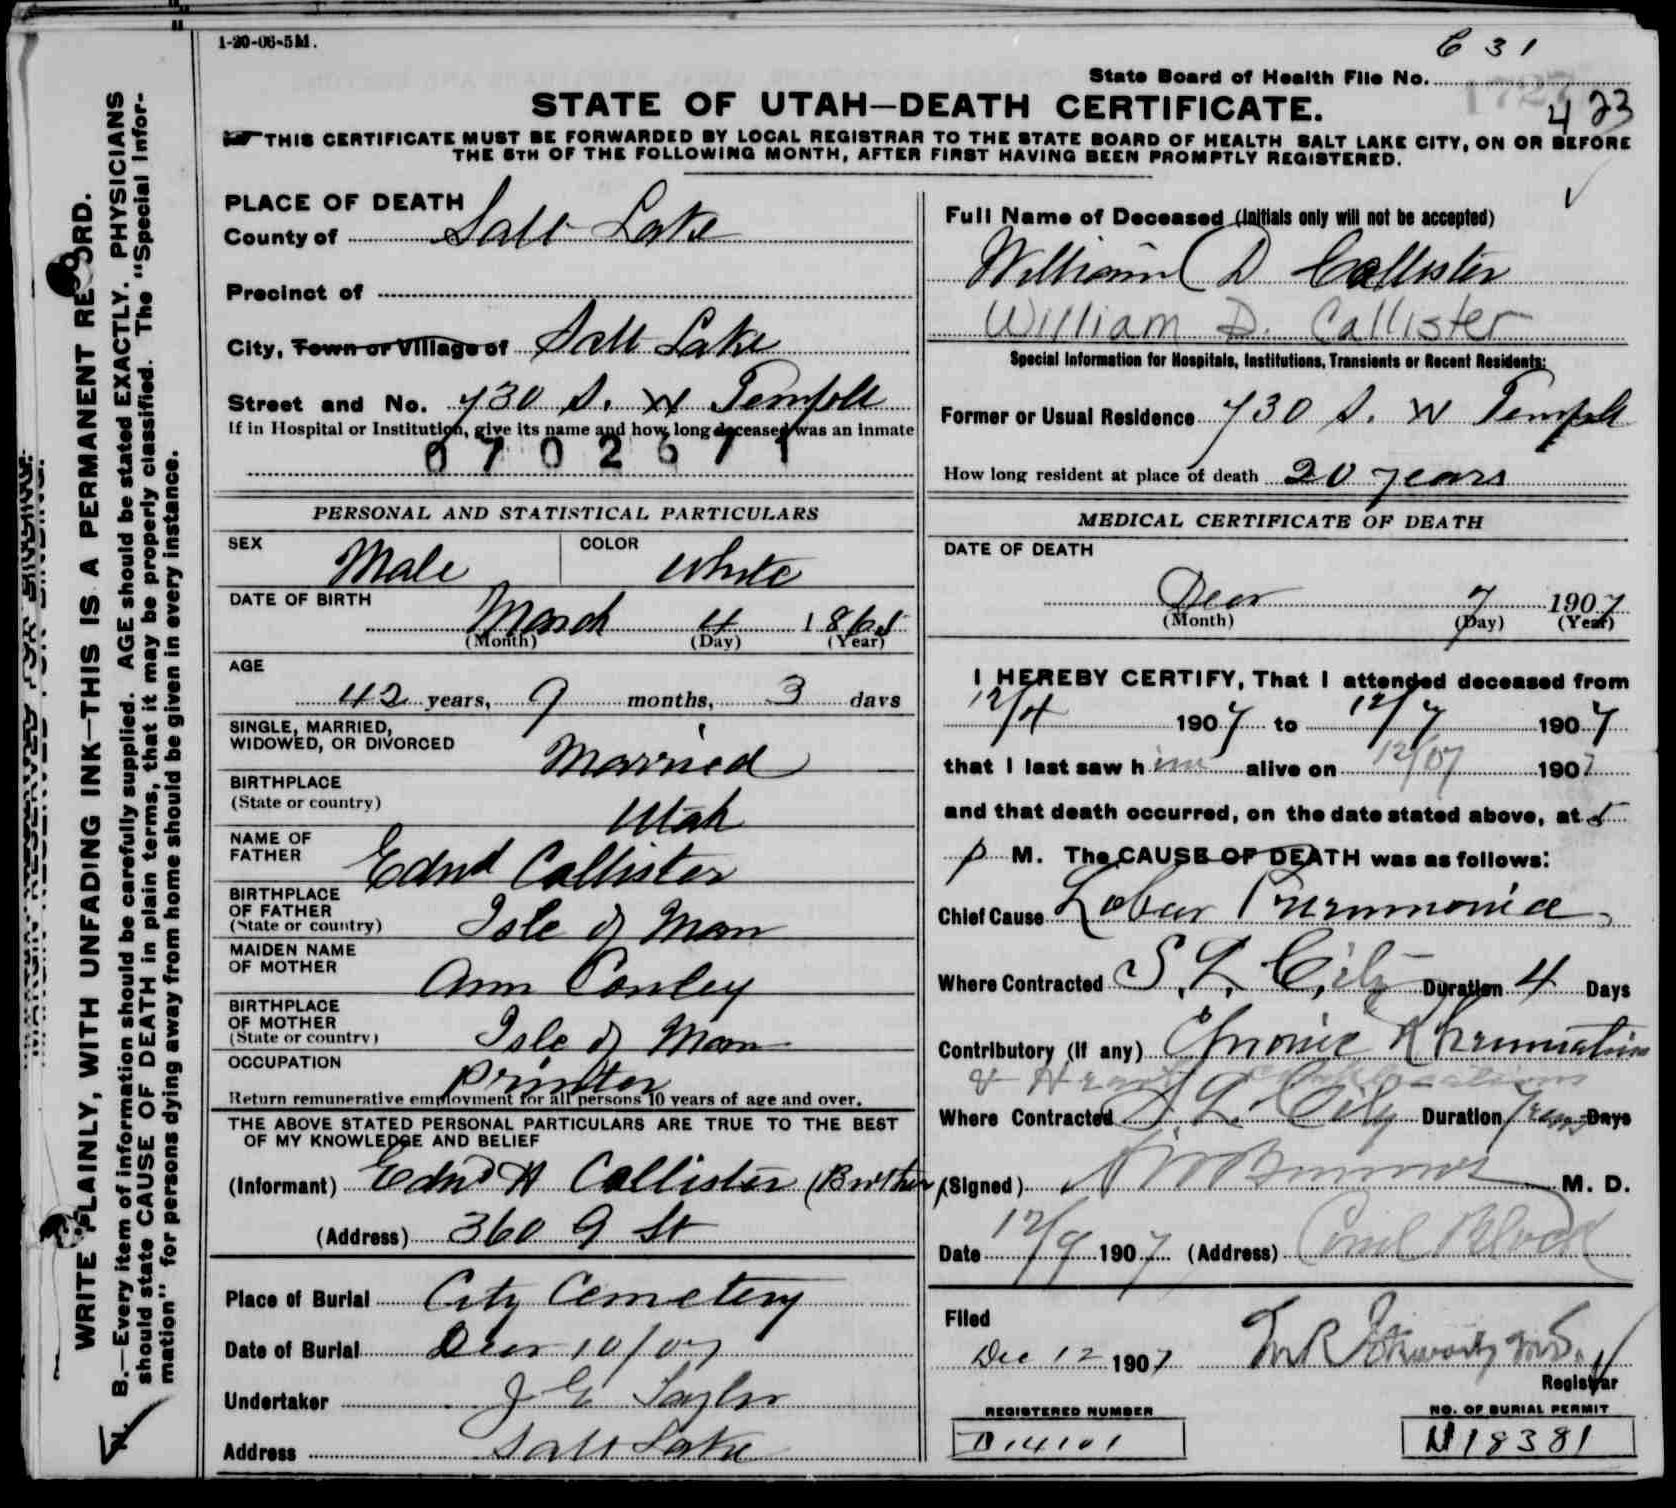 1-20-06-5M.
C 31
State Board of Health File No.
1727
423
STATE OF UTAH—DEATH CERTIFICATE.
THIS CERTIFICATE MUST BE FORWARDED BY LOCAL REGISTRAR TO THE STATE BOARD OF HEALTH SALT LAKE CITY, ON OR BEFORE
THE 5TH OF THE FOLLOWING MONTH, AFTER FIRST HAVING BEEN PROMPTLY REGISTERED.
WRITE PLAINLY, WITH UNFADING INK—THIS IS A PERMANENT RECORD.
N. B.—Every item of information should be carefully supplied. AGE should be stated EXACTLY. PHYSICIANS
should state CAUSE OF DEATH in plain terms, that it may be properly classified. The "Special Infor-
mation" for persons dying away from home should be given in every instance.
PLACE OF DEATH
County of Salt Lake
Precinct of
City, Town or Village of Salt Lake
Street and No. 730 S. W Temple
If in Hospital or Institution, give its name and how long deceased was an inmate
0702671
PERSONAL AND STATISTICAL PARTICULARS
SEX Male COLOR White
DATE OF BIRTH
March 4 1865
(Month) (Day) (Year)
AGE
42 years, 9 months, 3 days
SINGLE, MARRIED,
WIDOWED, OR DIVORCED Married
BIRTHPLACE
(State or country) Utah
NAME OF
FATHER Edwd Callister
BIRTHPLACE
OF FATHER
(State or country) Isle of Man
MAIDEN NAME
OF MOTHER Ann Conley
BIRTHPLACE
OF MOTHER
(State or country) Isle of Man
OCCUPATION
Printer
Return remunerative employment for all persons 10 years of age and over.
THE ABOVE STATED PERSONAL PARTICULARS ARE TRUE TO THE BEST
OF MY KNOWLEDGE AND BELIEF
(Informant) Edwd H Callister (Brother)
(Address) 360 9 St
Place of Burial City Cemetery
Date of Burial Decr 10/07
Undertaker J E Taylor
Address Salt Lake
Full Name of Deceased (Initials only will not be accepted)
William D Callister
William D. Callister
Special Information for Hospitals, Institutions, Transients or Recent Residents:
Former or Usual Residence 730 S. W Temple
How long resident at place of death 20 years
MEDICAL CERTIFICATE OF DEATH
DATE OF DEATH
Decr 7 1907
(Month) (Day) (Year)
I HEREBY CERTIFY, That I attended deceased from
12/4 1907 to 12/7 1907
that I last saw him alive on 12/07 1907
and that death occurred, on the date stated above, at 5
p M. The CAUSE OF DEATH was as follows:
Chief Cause Lobar Pneumonia
Where Contracted S. L. City Duration 4 Days
Contributory (if any) Chronic Rheumatism
& Heart
Where Contracted S. L. City Duration Years Days
(Signed) M. D.
Date 12/9 1907 (Address) Block
Filed
Dec 12 1907
Registrar
REGISTERED NUMBER
D14101
NO. OF BURIAL PERMIT
N18381